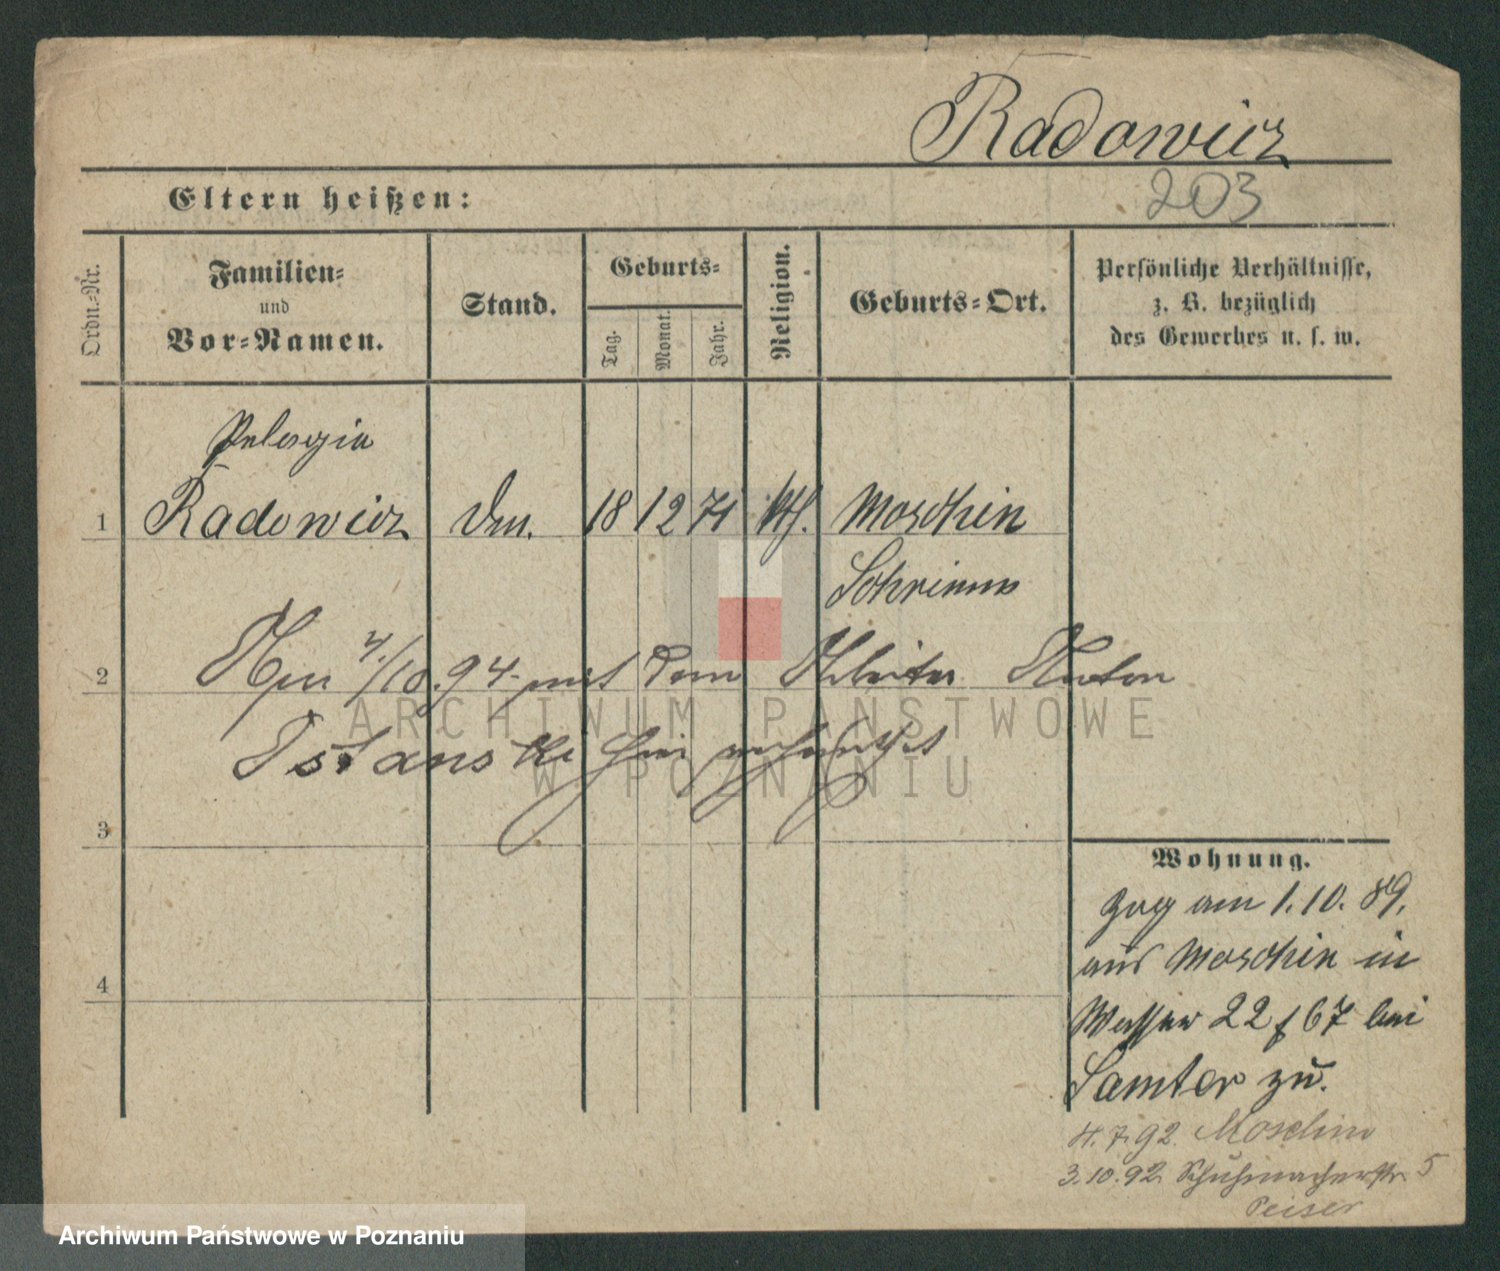 Radowicz
203
Eltern heißen:
Ordn.-Nr.
Familien-
und
Vor-Namen.
Stand.
Geburts-
Tag.
Monat.
Jahr.
Religion.
Geburts-Ort.
Persönliche Verhältnisse,
z. B. bezüglich
des Gewerbes u. s. w.
Pelagia
1 Radowicz 18 12 71 kth. Moschin
Schrimm
2 4./10. 94. mit dem Arbeiter Anton
hier verheirathet
3
4
Wohnung.
Zog am 1.10.89.
aus Moschin in
Wasser 22 f 67 bei
Samter zu.
4.7.92. Moschin
3.10.92. Schuhmacherstr. 5
Peiser
ARCHIWUM PAŃSTWOWE
W POZNANIU
Archiwum Państwowe w Poznaniu